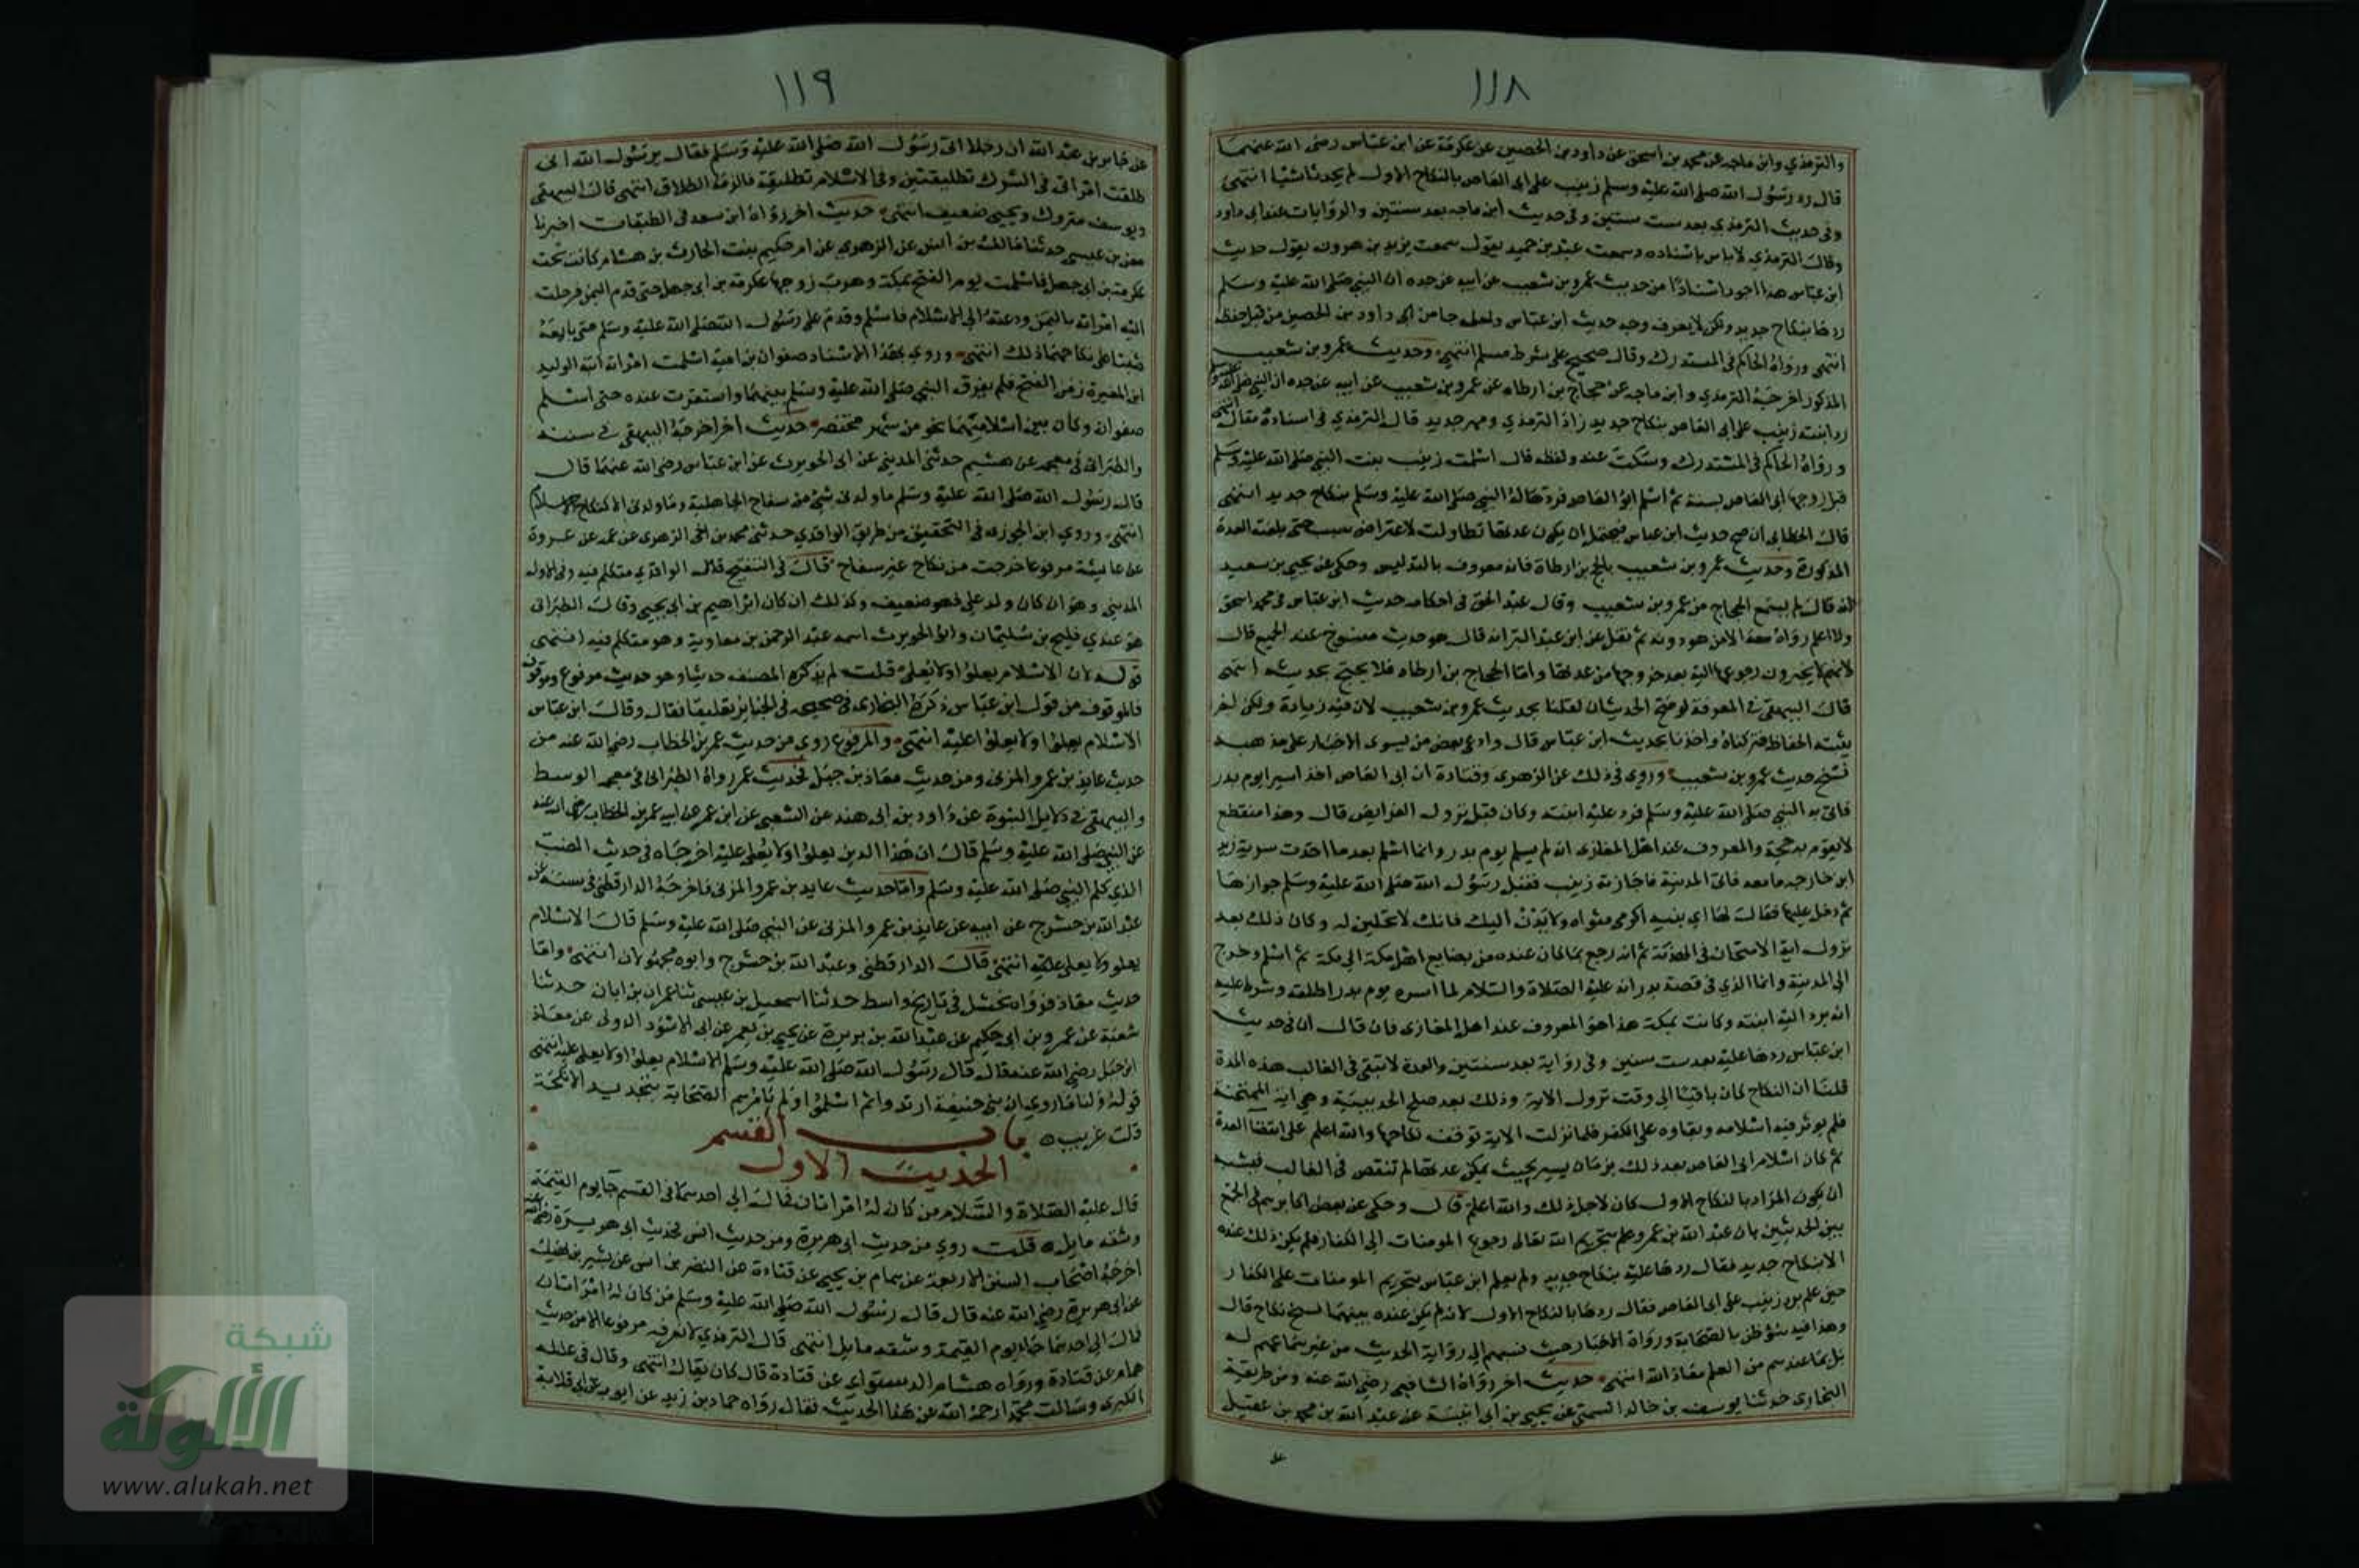 ١١٨
والترمذي وابن ماجه عن محمد بن اسحق عن داود بن الحصين عن عكرمة عن ابن عباس رضي الله عنهما
قال رد رسول الله صلى الله عليه وسلم زينب على ابي العاص بالنكاح الاول لم يحدث شيئا انتهى
وفي حديث الترمذي بعد ست سنين وفي حديث ابن ماجه بعد سنتين والروايات عند ابي داود
وقال الترمذي لاباس باسناده وسمعت عبد بن حميد يقول سمعت يزيد بن هرون يقول حديث
ابن عباس هذا اجود اسنادا من حديث عمرو بن شعيب عن ابيه عن جده ان النبي صلى الله عليه وسلم
ردها بنكاح جديد ولكن لا يعرف وجه حديث ابن عباس ولعله جا من ابي داود بن الحصين من قبل حفظه
انتهى ورواه الحاكم في المستدرك وقال صحيح على شرط مسلم انتهى وحديث عمرو بن شعيب
المذكور اخرجه الترمذي وابن ماجه عن حجاج بن ارطاه عن عمرو بن شعيب عن ابيه عن جده ان النبي صلى الله عليه وسلم
رد ابنته زينب على ابي العاص بنكاح جديد زاد الترمذي ومهر جديد قال الترمذي في اسناده مقال انتهى
ورواه الحاكم في المستدرك وسكت عنه ولفظه قال اسلمت زينب بنت النبي صلى الله عليه وسلم
قبل زوجها ابي العاص بسنة ثم اسلم ابو العاص فردها له النبي صلى الله عليه وسلم بنكاح جديد انتهى
قال الخطابي ان صح حديث ابن عباس فيحتمل ان يكون عدتها تطاولت لاعتراض سبب حتى بلغت العدة
المذكورة وحديث عمرو بن شعيب بالحجاج بن ارطاة فانه معروف بالتدليس وحكى عن يحيى بن سعيد
انه قال لم يسمع الحجاج من عمرو بن شعيب وقال عبد الحق في احكامه حديث ابن عباس في محمد اسحق
ولا اعلم رواه معه الا من هو دونه ثم نقل عن ابن عبد البر انه قال هو حديث منسوخ عند الجميع قال
لانهم لا يجيزون رجوعها اليه بعد خروجها من عدتها واما الحجاج بن ارطاه فلا يحتج بحديثه انتهى
قال البيهقي في المعرفة لو صح الحديثان لقلنا بحديث عمرو بن شعيب لان فيه زيادة ولكن لم
يثبته الحفاظ فتركناه واخذنا بحديث ابن عباس قال وادعى بعض من يسوى الاخبار على مذهبه
نسخ حديث عمرو بن شعيب وروى في ذلك عن الزهري وقتادة ان ابي العاص اخذ اسيرا يوم بدر
فاتى به النبي صلى الله عليه وسلم فرد عليه ابنته وكان قبل نزول الفرايض قال وهذا منقطع
لا يقوم به حجة والمعروف عند اهل المغازى انه لم يسلم يوم بدر وانما اسلم بعد ما اخذت سرية زيد
ابن حارثه ما معه فاتى المدينة فاجازته زينب فقبل رسول الله صلى الله عليه وسلم جوازها
ثم دخل عليها فقال لها اي بنيه اكرمي مثواه ولا يدن اليك فانك لا تحلين له وكان ذلك بعد
نزول اية الامتحان في الهدنة ثم انه رجع بما كان عنده من بضايع اهل مكة الى مكة ثم اسلم وخرج
الى المدينة وانما الذي في قصة بدر انه عليه الصلاة والسلام لما اسره يوم بدر اطلقه وشرط عليه
انه يرد اليه ابنته وكانت بمكة هذا هو المعروف عند اهل المغازى فان قال ان في حديث
ابن عباس ردها عليه بعد ست سنين وفي رواية بعد سنتين والعدة لا تبقى في الغالب هذه المدة
قلنا ان النكاح كان باقيا الى وقت نزول الاية وذلك بعد صلح الحديبية وهي اية الممتحنة
فلم يوثر فيه اسلامه وبقاوه على الكفر فلما نزلت الاية توقف نكاحها والله اعلم على انقضا العدة
ثم كان اسلام ابى العاص بعد ذلك بزمان يسير بحيث يمكن عدتها لم تنقض في الغالب فيشبه
ان يكون المراد بالنكاح الاول كان لاجل ذلك والله اعلم قال وحكى عن بعض اكابرهم في الجمع
بين الحديثين بان عبد الله بن عمرو علم بتحريم الله تعالى رجوع المومنات الى الكفار فلم يكن ذلك عنده
الا بنكاح جديد فقال ردها عليه بنكاح جديد ولم يعلم ابن عباس بتحريم المومنات على الكفار
حين علم برد زينب على ابى العاص فقال ردها بالنكاح الاول لانه لم يكن عنده بينهما فسخ نكاح قال
وهذا فيه سوء ظن بالصحابة ورواة الاخبار حيث نسبهم الى رواية الحديث من غير سماعهم له
بل بما عندهم من العلم معاذ الله انتهى حديث اخر رواه الشافعي رضي الله عنه ومن طريقه
البخارى حدثنا يوسف بن خالد السمتي عن يحيى بن ابى انيسة عن عبد الله بن محمد بن عقيل
١١٩
عن جابر بن عبد الله ان رجلا اتى رسول الله صلى الله عليه وسلم فقال يرسول الله انى
طلقت امراتى في الشرك تطليقتين وفي الاسلام تطليقة فالزمه الطلاق انتهى قال البيهقي
ويوسف متروك ويحيى ضعيف انتهى حديث اخر رواه ابن سعد في الطبقات اخبرنا
معن بن عيسى حدثنا مالك بن انس عن الزهري عن ام حكيم بنت الحارث بن هشام كانت تحت
عكرمة بن ابى جهل فاسلمت يوم الفتح بمكة وهرب زوجها عكرمة بن ابى جهل حتى قدم اليمن فرحلت
اليه امراته باليمن ودعته الى الاسلام فاسلم وقدم على رسول الله صلى الله عليه وسلم حتى بايعه
ثبتا على نكاحهما ذلك انتهى وروي بهذا الاسناد صفوان بن امية اسلمت امراته ابنة الوليد
ابن المغيرة زمن الفتح فلم يفرق النبي صلى الله عليه وسلم بينهما واستقرت عنده حتى اسلم
صفوان وكان بين اسلاميهما نحو من شهر مختصر حديث اخر اخرجه البيهقي في سننه
والطبراني في معجمه عن هشيم حدثنى المدينى عن ابى الحويرث عن ابن عباس رضي الله عنهما قال
قال رسول الله صلى الله عليه وسلم ما ولدنى شيء من سفاح الجاهلية وما ولدنى الا كنكاح الاسلام
انتهى وروي ابن الجوزى في التحقيق من طريق الواقدي حدثنى محمد بن اخى الزهرى عن عمه عن عروة
عن عايشة مرفوعا خرجت من نكاح غير سفاح قال في التنقيح قلت الواقدى متكلم فيه وفي الاول
المدينى وهو ان كان ولد على فهو ضعيف وكذلك ان كان ابراهيم بن ابى يحيى وقال الطبرانى
هو عندي فليح بن سليمان وابو الحويرث اسمه عبد الرحمن بن معاوية وهو متكلم فيه انتهى
قوله لان الاسلام يعلوا ولا يعلى قلت لم يذكره المصنف حديثا وهو حديث مرفوع وموقوف
فالموقوف من قول ابن عباس ذكره البخارى في صحيحه في الجنايز تعليقا فقال وقال ابن عباس
الاسلام يعلوا ولا يعلوا عليه انتهى والمرفوع روى من حديث عمر بن الخطاب رضي الله عنه من
حديث عايذ بن عمرو المزنى ومن حديث معاذ بن جبل فحديث عمر رواه الطبراني في معجمه الوسط
والبيهقي في دلايل النبوة عن داود بن ابى هند عن الشعبى عن ابن عمر عن ابيه عمر بن الخطاب رضي الله عنه
عن النبي صلى الله عليه وسلم قال ان هذا الدين يعلوا ولا يعلى عليه اخرجاه في حديث الضب
الذي كلم النبي صلى الله عليه وسلم واما حديث عايد بن عمرو المزنى فاخرجه الدارقطنى في سننه عن
عبد الله بن حشرج عن ابيه عن عايذ بن عمرو المزنى عن النبي صلى الله عليه وسلم قال الاسلام
يعلو ولا يعلى عليه انتهى قال الدارقطنى وعبد الله بن حشرج وابوه مجهولان انتهى واما
حديث معاذ فرواه نحشل في تاريخ واسط حدثنا اسمعيل بن عيسى ثنا عمران بن ابان حدثنا
شعبة عن عمرو بن ابى حكيم عن عبد الله بن بريدة عن يحيى بن يعمر عن ابى الاسود الدولى عن معاذ
ابن جبل رضي الله عنه قال قال رسول الله صلى الله عليه وسلم الاسلام يعلوا ولا يعلى عليه انتهى
قوله ولنا ما روي ان بنى حنيفة ارتدوا ثم اسلموا ولم يامرهم الصحابة بتجديد الانكحة
قلت غريب باب القسم
الحديث الاول
قال عليه الصلاة والسلام من كان له امراتان فمال الى احدهما في القسم جا يوم القيمة
وشقه مايل قلت روي من حديث ابى هريرة ومن حديث انس فحديث ابى هريرة رضي الله عنه
اخرجه اصحاب السنن الاربعة عن همام بن يحيى عن قتادة عن النضر بن انس عن بشير بن نهيك
عن ابى هريرة رضي الله عنه قال قال رسول الله صلى الله عليه وسلم من كان له امراتان
فمال الى احدهما جاء يوم القيمة وشقه مايل انتهى قال الترمذي لا نعرفه مرفوعا الا من حديث
همام عن قتادة ورواه هشام الدستواى عن قتادة قال كان يقال انتهى وقال في علله
الكبرى وسالت محمدا رحمه الله عن هذا الحديث فقال رواه حماد بن زيد عن ايوب عن ابى قلابة
شبكة
الألوكة
www.alukah.net